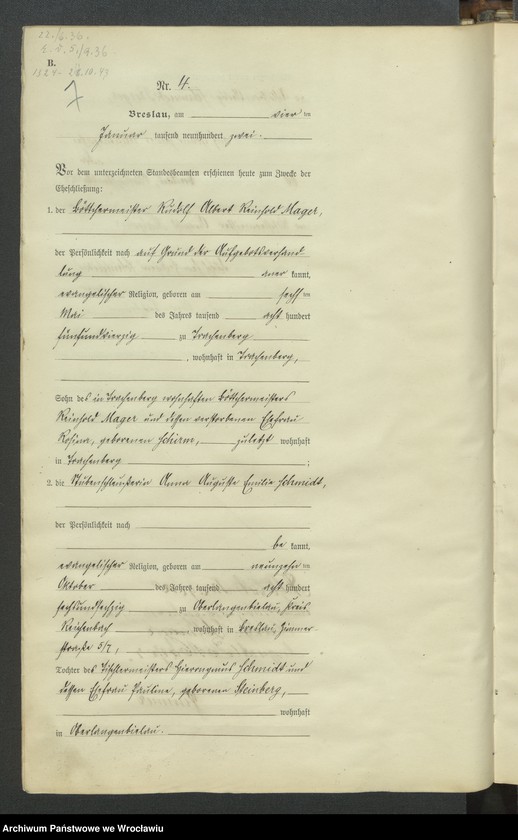 22./6.36.
E.V.S./9.36
1324 - 28.10.43
B.
7
Nr. 4.
Breslau, am vier ten
Januar tausend neunhundert zwei -
Vor dem unterzeichneten Standesbeamten erschienen heute zum Zwecke der
Eheschließung:
1. der Böttchermeister Rudolf Albert Reinhold Mager,
der Persönlichkeit nach auf Grund der Aufgebotsverhand
lung aner kannt,
evangelischer Religion, geboren am sechs ten
Mai des Jahres tausend acht hundert
fünfundvierzig zu Trachenberg
, wohnhaft in Trachenberg,
Sohn des in Trachenberg wohnhaften Böttchermeisters
Reinhold Mager und dessen verstorbenen Ehefrau
Rosina, geborenen Schirm, zuletzt wohnhaft
in Trachenberg ;
2. die Anna Auguste Emilie Schmidt,
der Persönlichkeit nach
be kannt,
evangelischer Religion, geboren am neunzehn ten
Oktober des Jahres tausend acht hundert
sechsundsechzig zu Oberlangenbielau, Kreis
Reichenbach , wohnhaft in Breslau,
straße 5/7,
Tochter des Tischlermeisters Hieronymus Schmidt und
dessen Ehefrau Pauline, geborenen Steinberg,
wohnhaft
in Oberlangenbielau.
Archiwum Państwowe we Wrocławiu